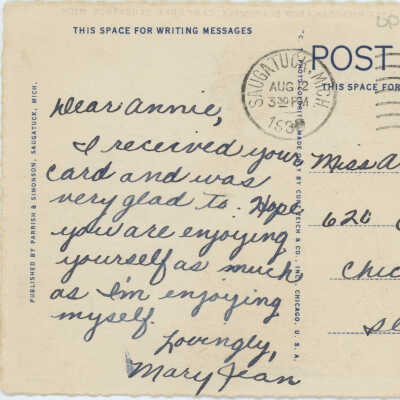 THIS SPACE FOR WRITING MESSAGES
POST
THIS SPACE FOR
SAUGATUCK, MICH.
AUG 2
3 30 PM
193
Dear Annie,
I received your
card and was
very glad to. Hope
you are enjoying
yourself as much
as I'm enjoying
myself.
Lovingly,
Mary Jean
Miss A
620
Chic
PUBLISHED BY PARRISH & SIMONSON, SAUGATUCK, MICH.
MADE ONLY BY CURT TEICH & CO., INC., CHICAGO, U. S. A.